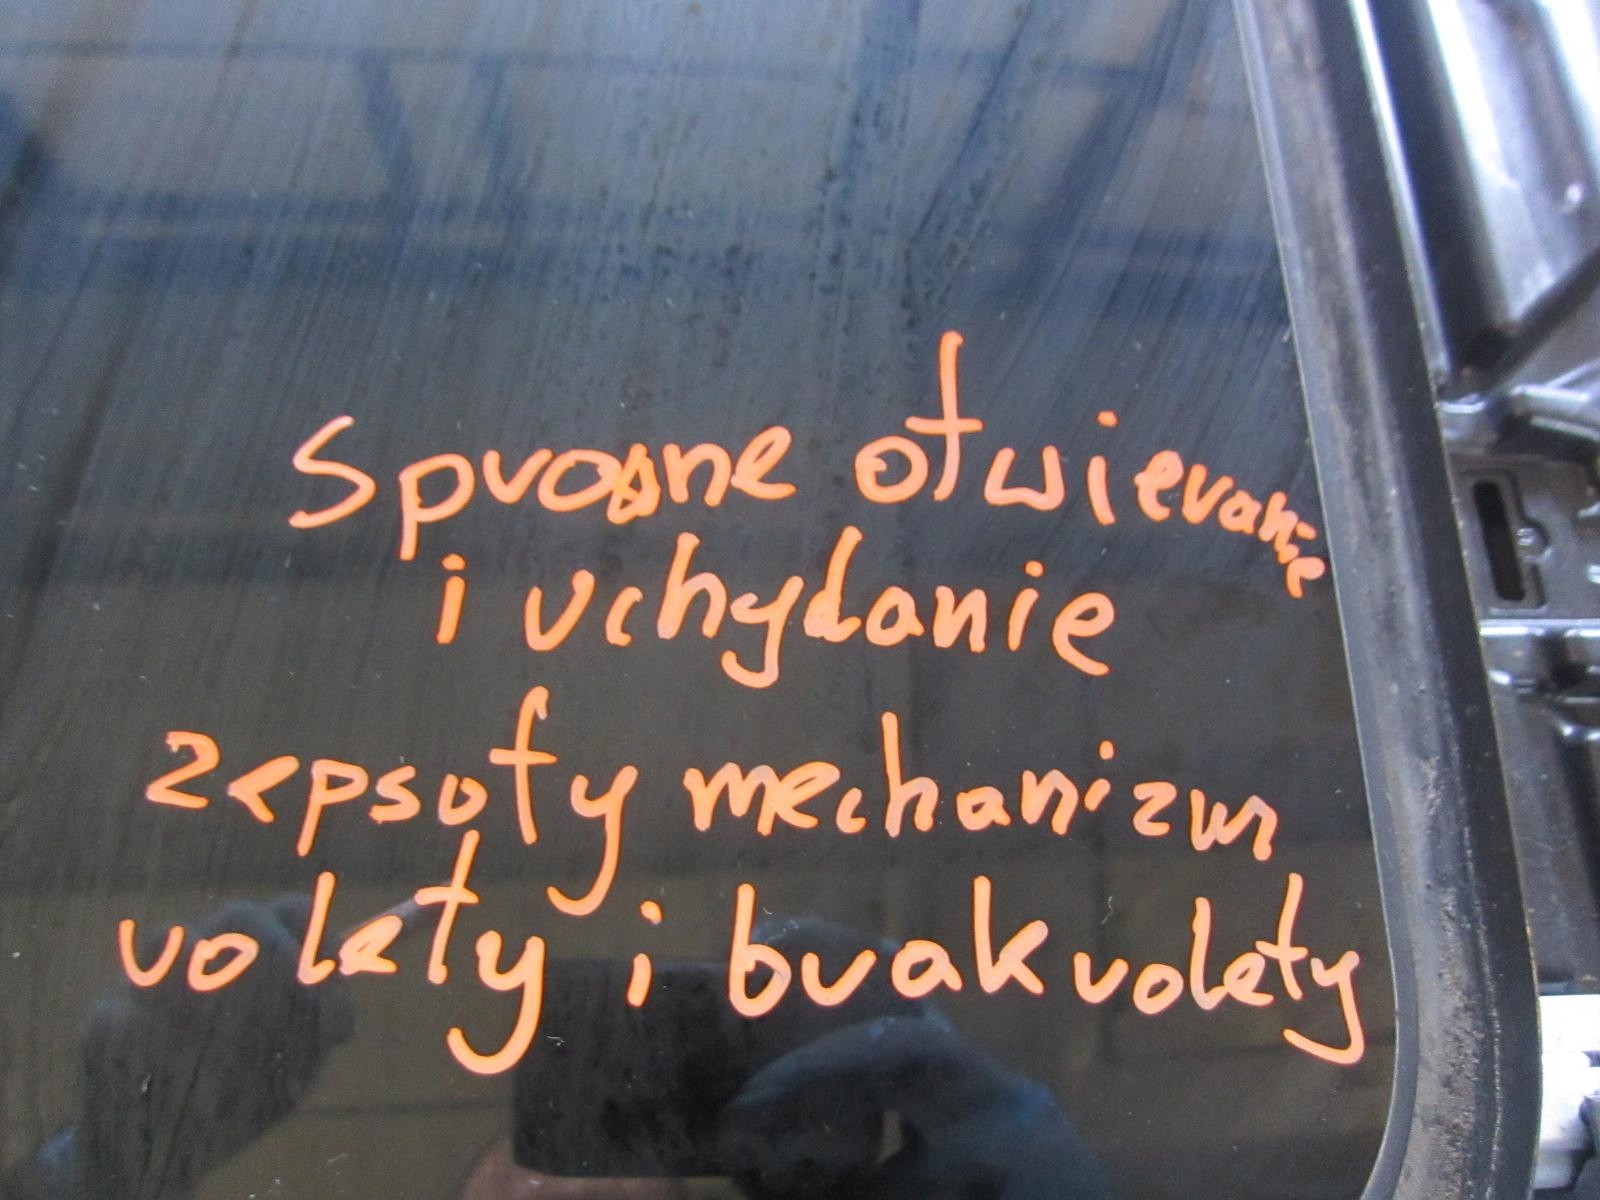 Sprawne otwieranie
i uchylanie
zepsoty mechanizm
rolety i brak rolety